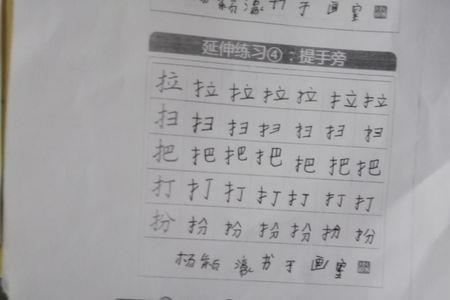 书于画室
延伸练习④：提手旁
拉拉拉拉拉拉拉
扫扫扫扫扫扫扫
把把把把把把把
打打打打打打打
扮扮扮扮扮扮扮
杨 瀛书于画室